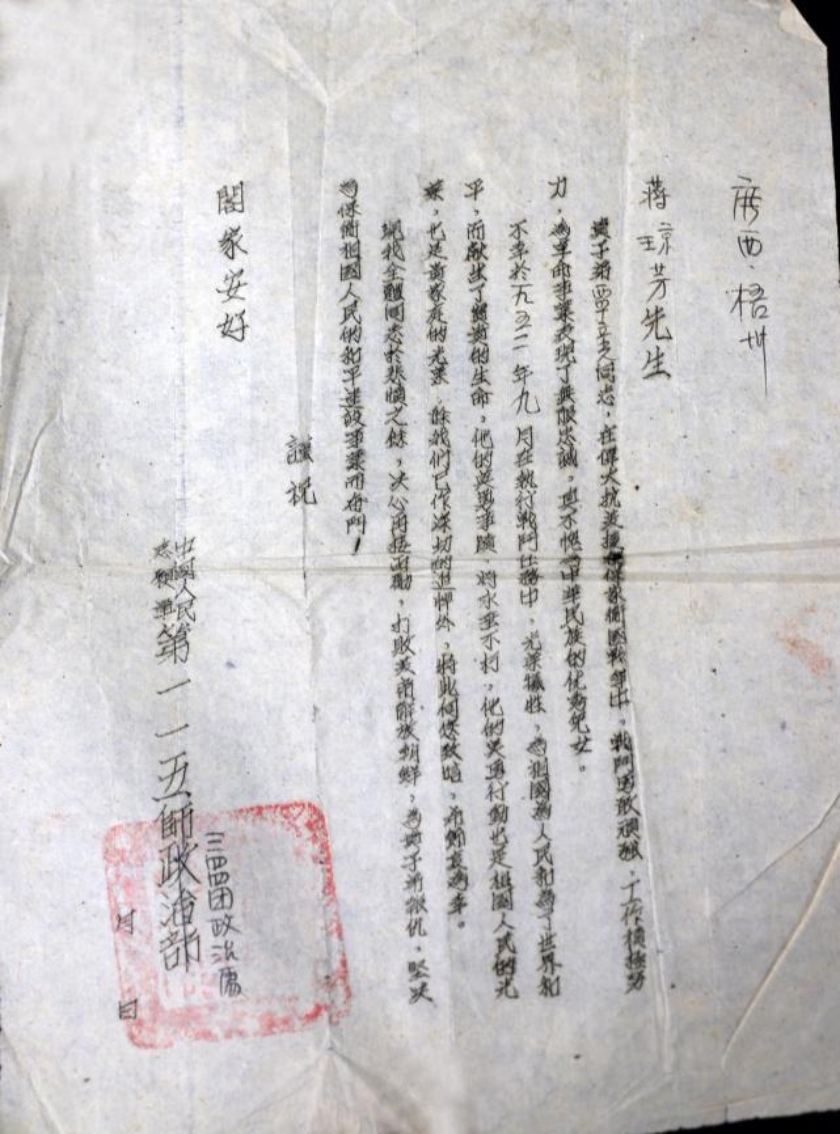 廣西·梧州
蔣琼芳先生
貴子弟 同志，在偉大抗美援朝保家衛國戰爭中，戰鬥勇敢頑強，工作積極努
力，為革命事業表現了無限忠誠，真不愧為中華民族的優秀兒女。
不幸於一九五二年九月在執行戰鬥任務中，光榮犧牲，為祖國為人民和為了世界和
平，而献出了寶貴的生命，他的英勇事蹟，將永垂不朽，他的英勇行動也是祖國人民的光
榮，也是貴家庭的光榮，除我們已作深切的追悼外，特此函 致 ，希節哀為幸。
現我全體同志於悲憤之餘，决心再接再勵，打敗美 解放朝鮮，為貴子弟報仇，堅决
為保衛祖國人民的和平建設事業而奋鬥！
謹祝
閤家安好
中國人民志願軍第一一五師政治部
三四四团政治處
月 日